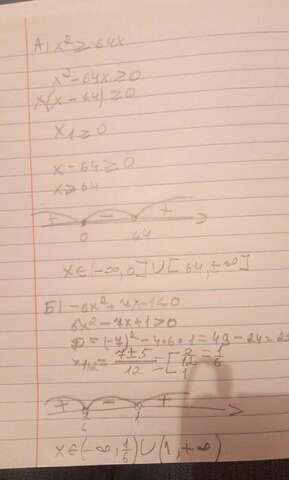 А) x² ≥ 64x
x² - 64x ≥ 0
x(x - 64) ≥ 0
x₁ ≥ 0
x - 64 ≥ 0
x ≥ 64
+ - +
0 64
x ∈ (-∞, 0] ∪ [64, +∞]
Б) -6x² + 7x - 1 < 0
6x² - 7x + 1 > 0
D = (-7)² - 4·6·1 = 49 - 24 = 25
x₁,₂ = 7±5/12 = [2/12 = 1/6
1
+ - +
1/6 1
x ∈ (-∞, 1/6) ∪ (1, +∞)